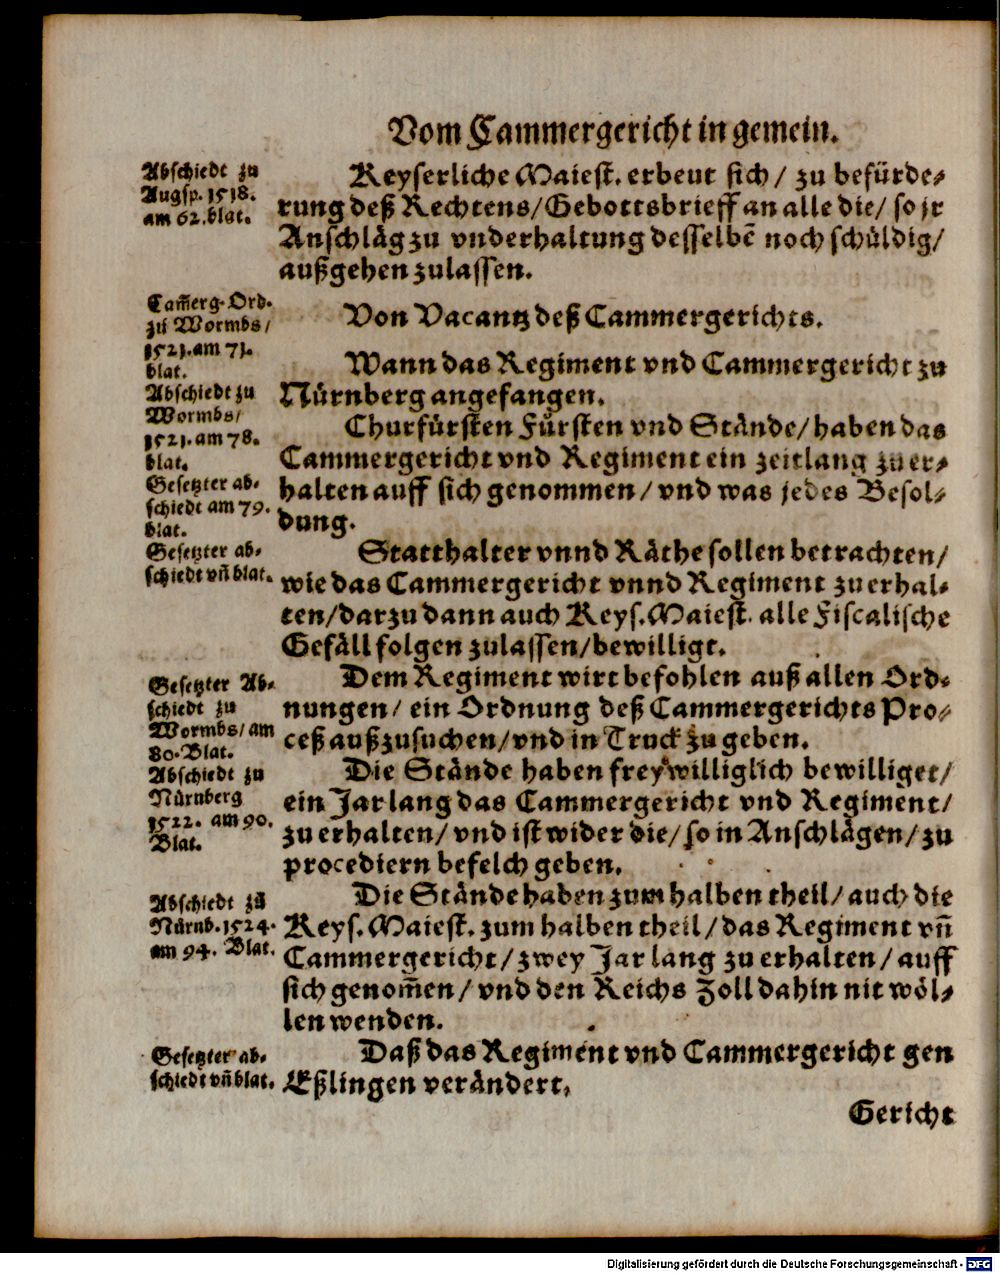 Vom Cammergericht in gemein.
Abschiedt zu
Augsp. 1518.
am 62. blat.
Keyserliche Maiest. erbeut sich / zu befürde⸗
rung deß Rechtens / Gebottsbrieff an alle die / so jr
Anschläg zu vnderhaltung desselbē noch schüldig /
außgehen zulassen.
Cam̄erg. Ord.
zu Wormbs /
1521. am 71.
blat.
Von Vacantz deß Cammergerichts.
Wann das Regiment vnd Cammergericht zu
Nürnberg angefangen.
Abschiedt zu
Wormbs /
1521. am 78.
blat.
Churfürsten Fürsten vnd Stände / haben das
Cammergericht vnd Regiment ein zeitlang zu er⸗
halten auff sich genommen / vnd was jedes Besol⸗
dung.
Gesetzter ab⸗
schiedt am 79.
blat.
Gesetzter ab⸗
schiedt vn̄ blat.
Statthalter vnnd Räthe sollen betrachten /
wie das Cammergericht vnnd Regiment zu erhal⸗
ten / darzu dann auch Keys. Maiest. alle Fiscalische
Gefäll folgen zulassen / bewilligt.
Gesetzter Ab⸗
schiedt zu
Wormbs / am
80. Blat.
Dem Regiment wirt befohlen auß allen Ord⸗
nungen / ein Ordnung deß Cammergerichts Pro⸗
ceß außzusuchen / vnd in Truck zu geben.
Abschiedt zu
Nürnberg
1522. am 90.
Blat.
Die Stände haben freywilliglich bewilliget /
ein Jar lang das Cammergericht vnd Regiment /
zu erhalten / vnd ist wider die / so in Anschlägen / zu
procediern befelch geben.
Abschiedt zů
Nürnb. 1524.
am 94. Blat.
Die Stände haben zum halben theil / auch die
Keys. Maiest. zum halben theil / das Regiment vn̄
Cammergericht / zwey Jar lang zu erhalten / auff
sich genom̄en / vnd den Reichs Zoll dahin nit wöl⸗
len wenden.
Gesetzter ab⸗
schiedt vn̄ blat.
Daß das Regiment vnd Cammergericht gen
Eßlingen verändert.
Gericht
Digitalisierung gefördert durch die Deutsche Forschungsgemeinschaft - DFG